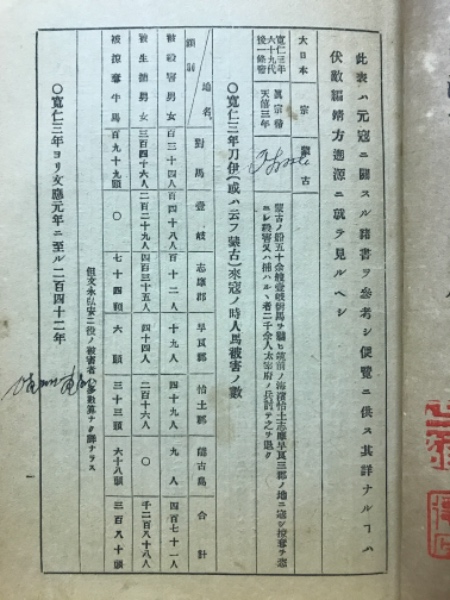 此表ハ元寇ニ關スル諸書ヲ參考シ便覽ニ供ス其詳ナルヿハ
伏敵編靖方溯源ニ就テ見ルヘシ
大日本 宗 蒙古
寬仁三年 六十九代 後一條帝
眞宗帝 天禧三年
蒙古ノ船五十余艘壹岐對馬ヲ
ニシ殺害又ハ捕ハルヽ者二千余人太宰府ノ兵討テ之ヲ退ク
○寬仁三年刀伊(或ハ云フ蒙古)來寇ノ時人馬被害ノ數
類別 地名 對馬 壹岐 志麻郡 早良郡 怡土郡 能古島 合計
被殺害男女 百三十四人 百四十八人 百十二人 十九人 四十九人 九人 四百七十一人
被生捕男女 三百四十六人 二百二十九人 四百三十五人 四十四人 二百十六人 〇 千二百八十八人
被掠奪牛馬 百九十九頭 〇 七十四頭 六頭 三十三頭 六十八頭 三百八十頭
但文永弘安二役ノ被害者
○寬仁三年ヨリ文應元年ニ至ル二百四十二年